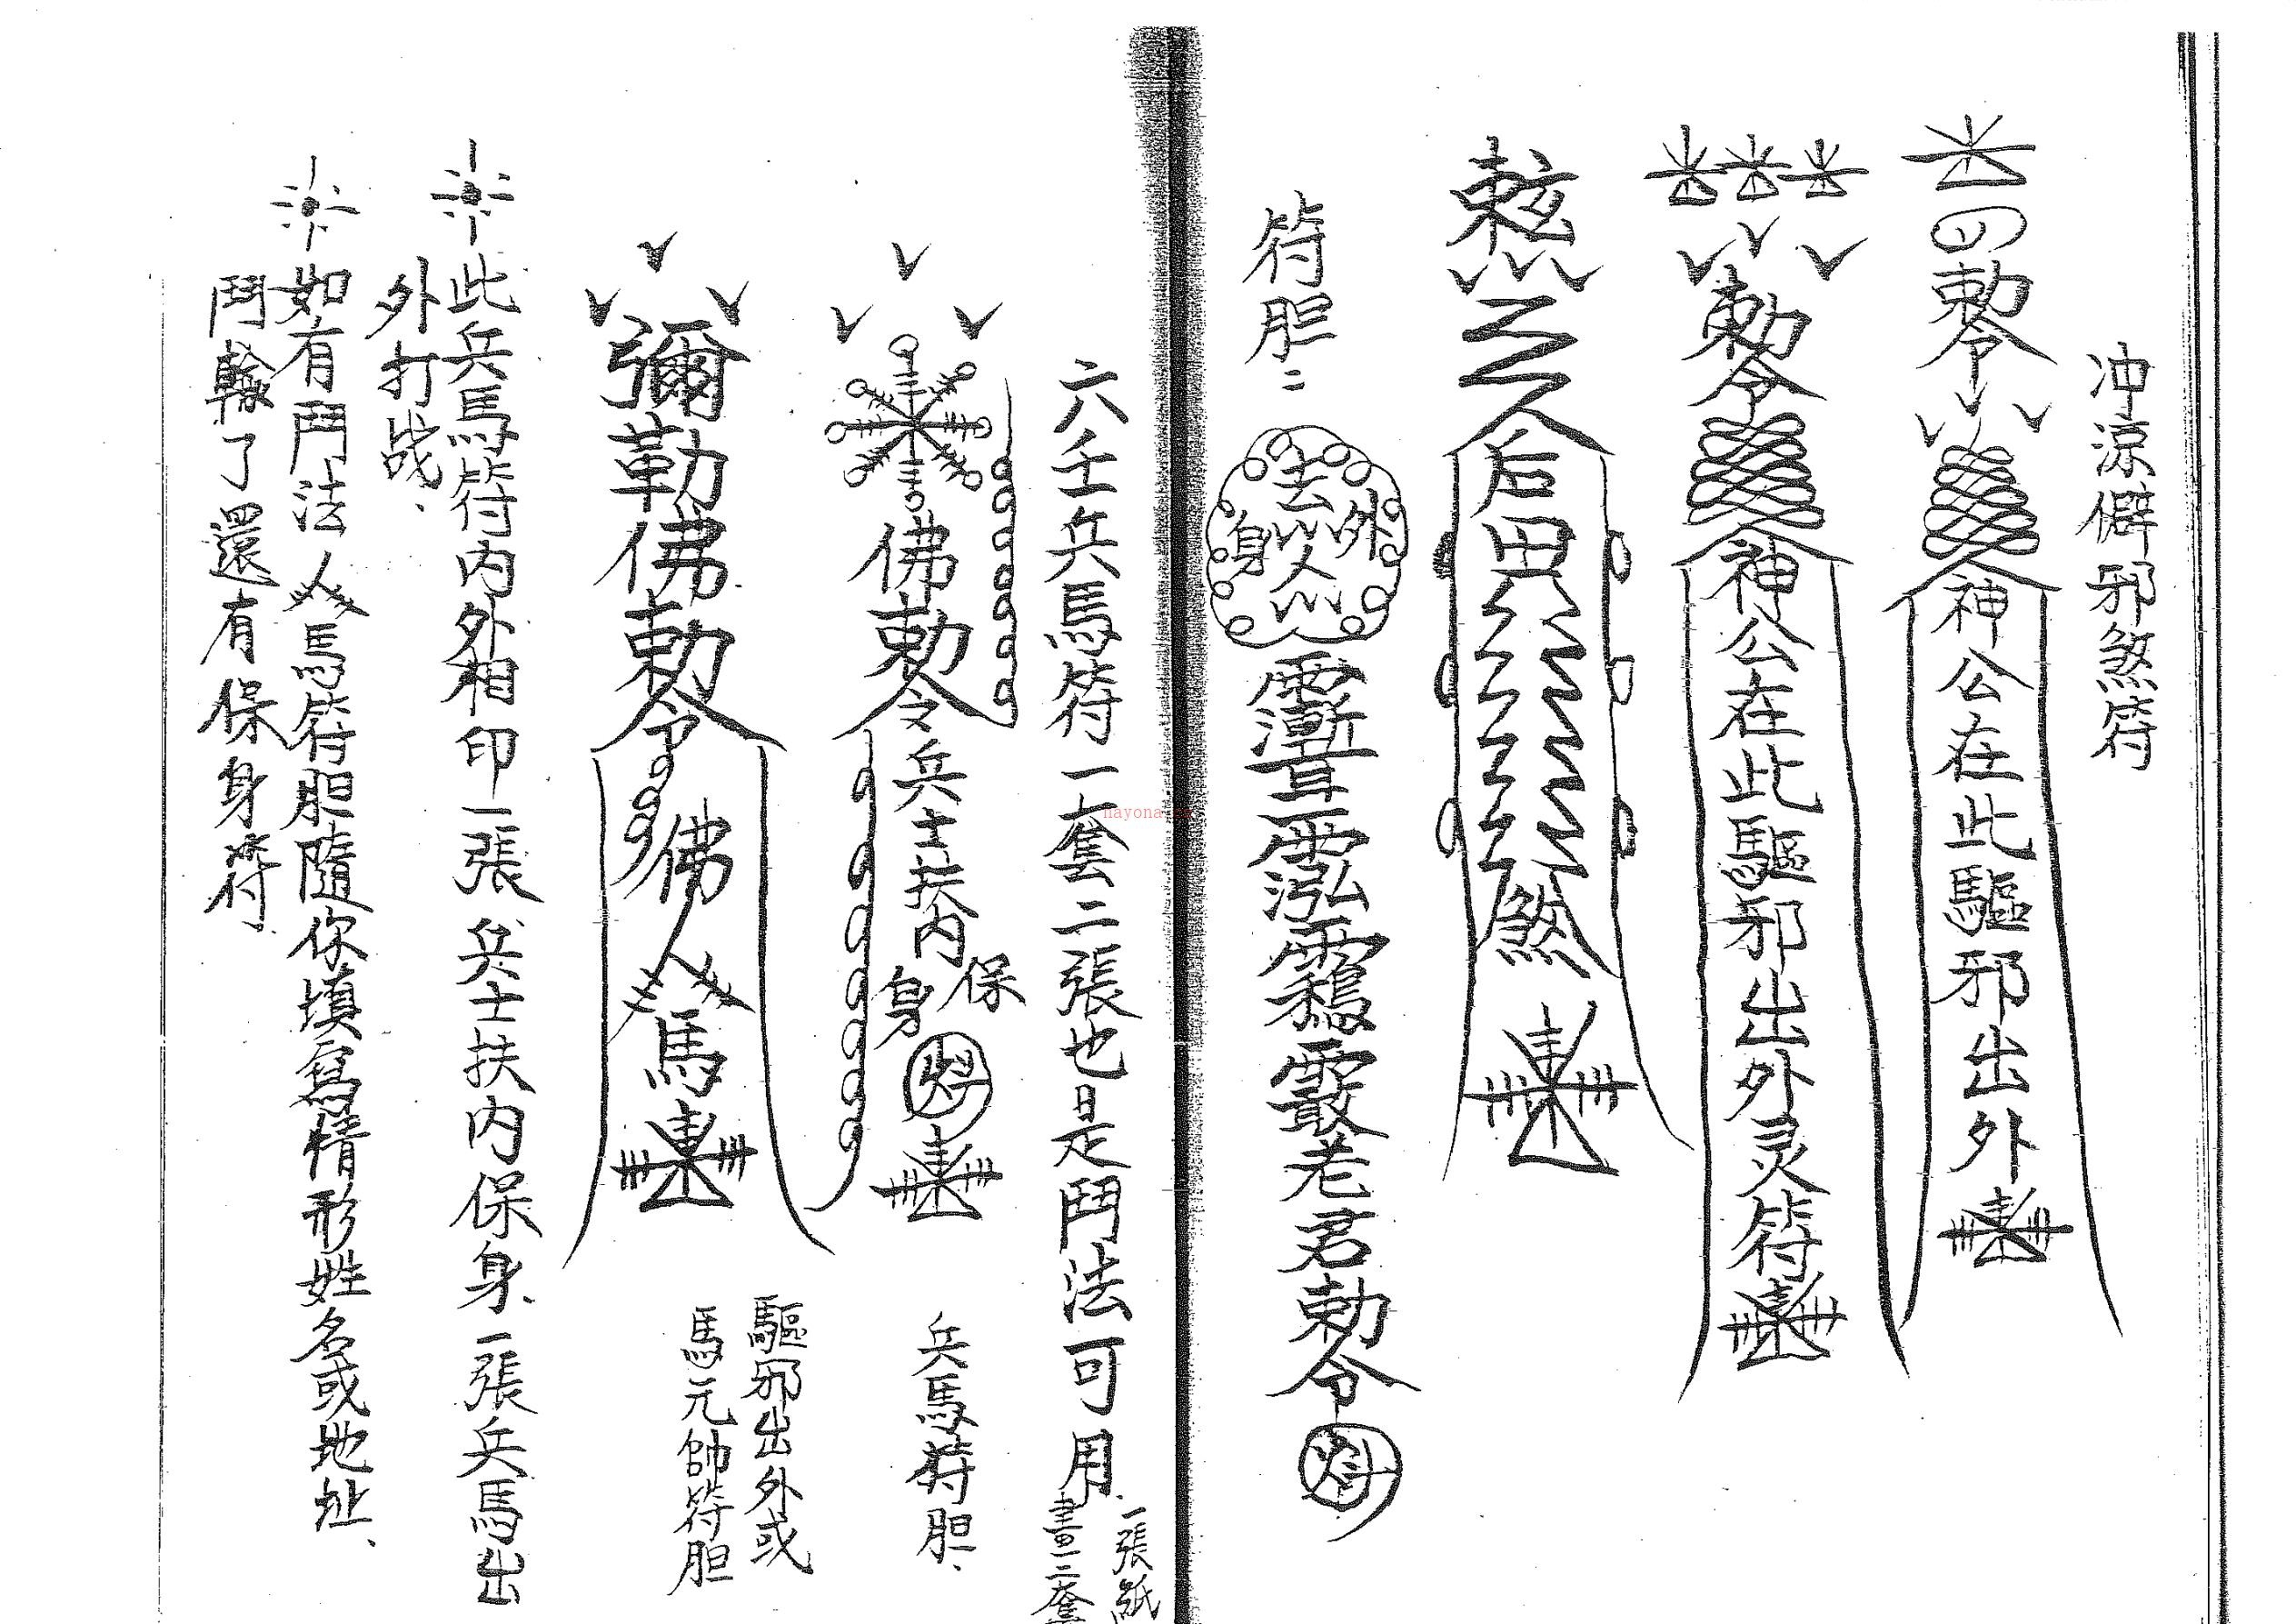 冲涼僻邪煞符
勅令神公在此驅邪出外
勅令神公在此驅邪出外灵符
后田煞
符胆二
去身外
老君勅令
六壬兵馬符一套二張也是鬥法可用
一張紙
畫二套
佛勅令兵士扶内
保身
兵馬符胆、
彌勒佛勅令佛馬
驅邪出外或
馬元帥符胆
此兵馬符内外相印一張兵士扶内保身、一張兵馬出
外打战、
如有鬥法馬符胆隨你填寫情形姓名或地址、
鬥輸了還有保身符
nayona.cn